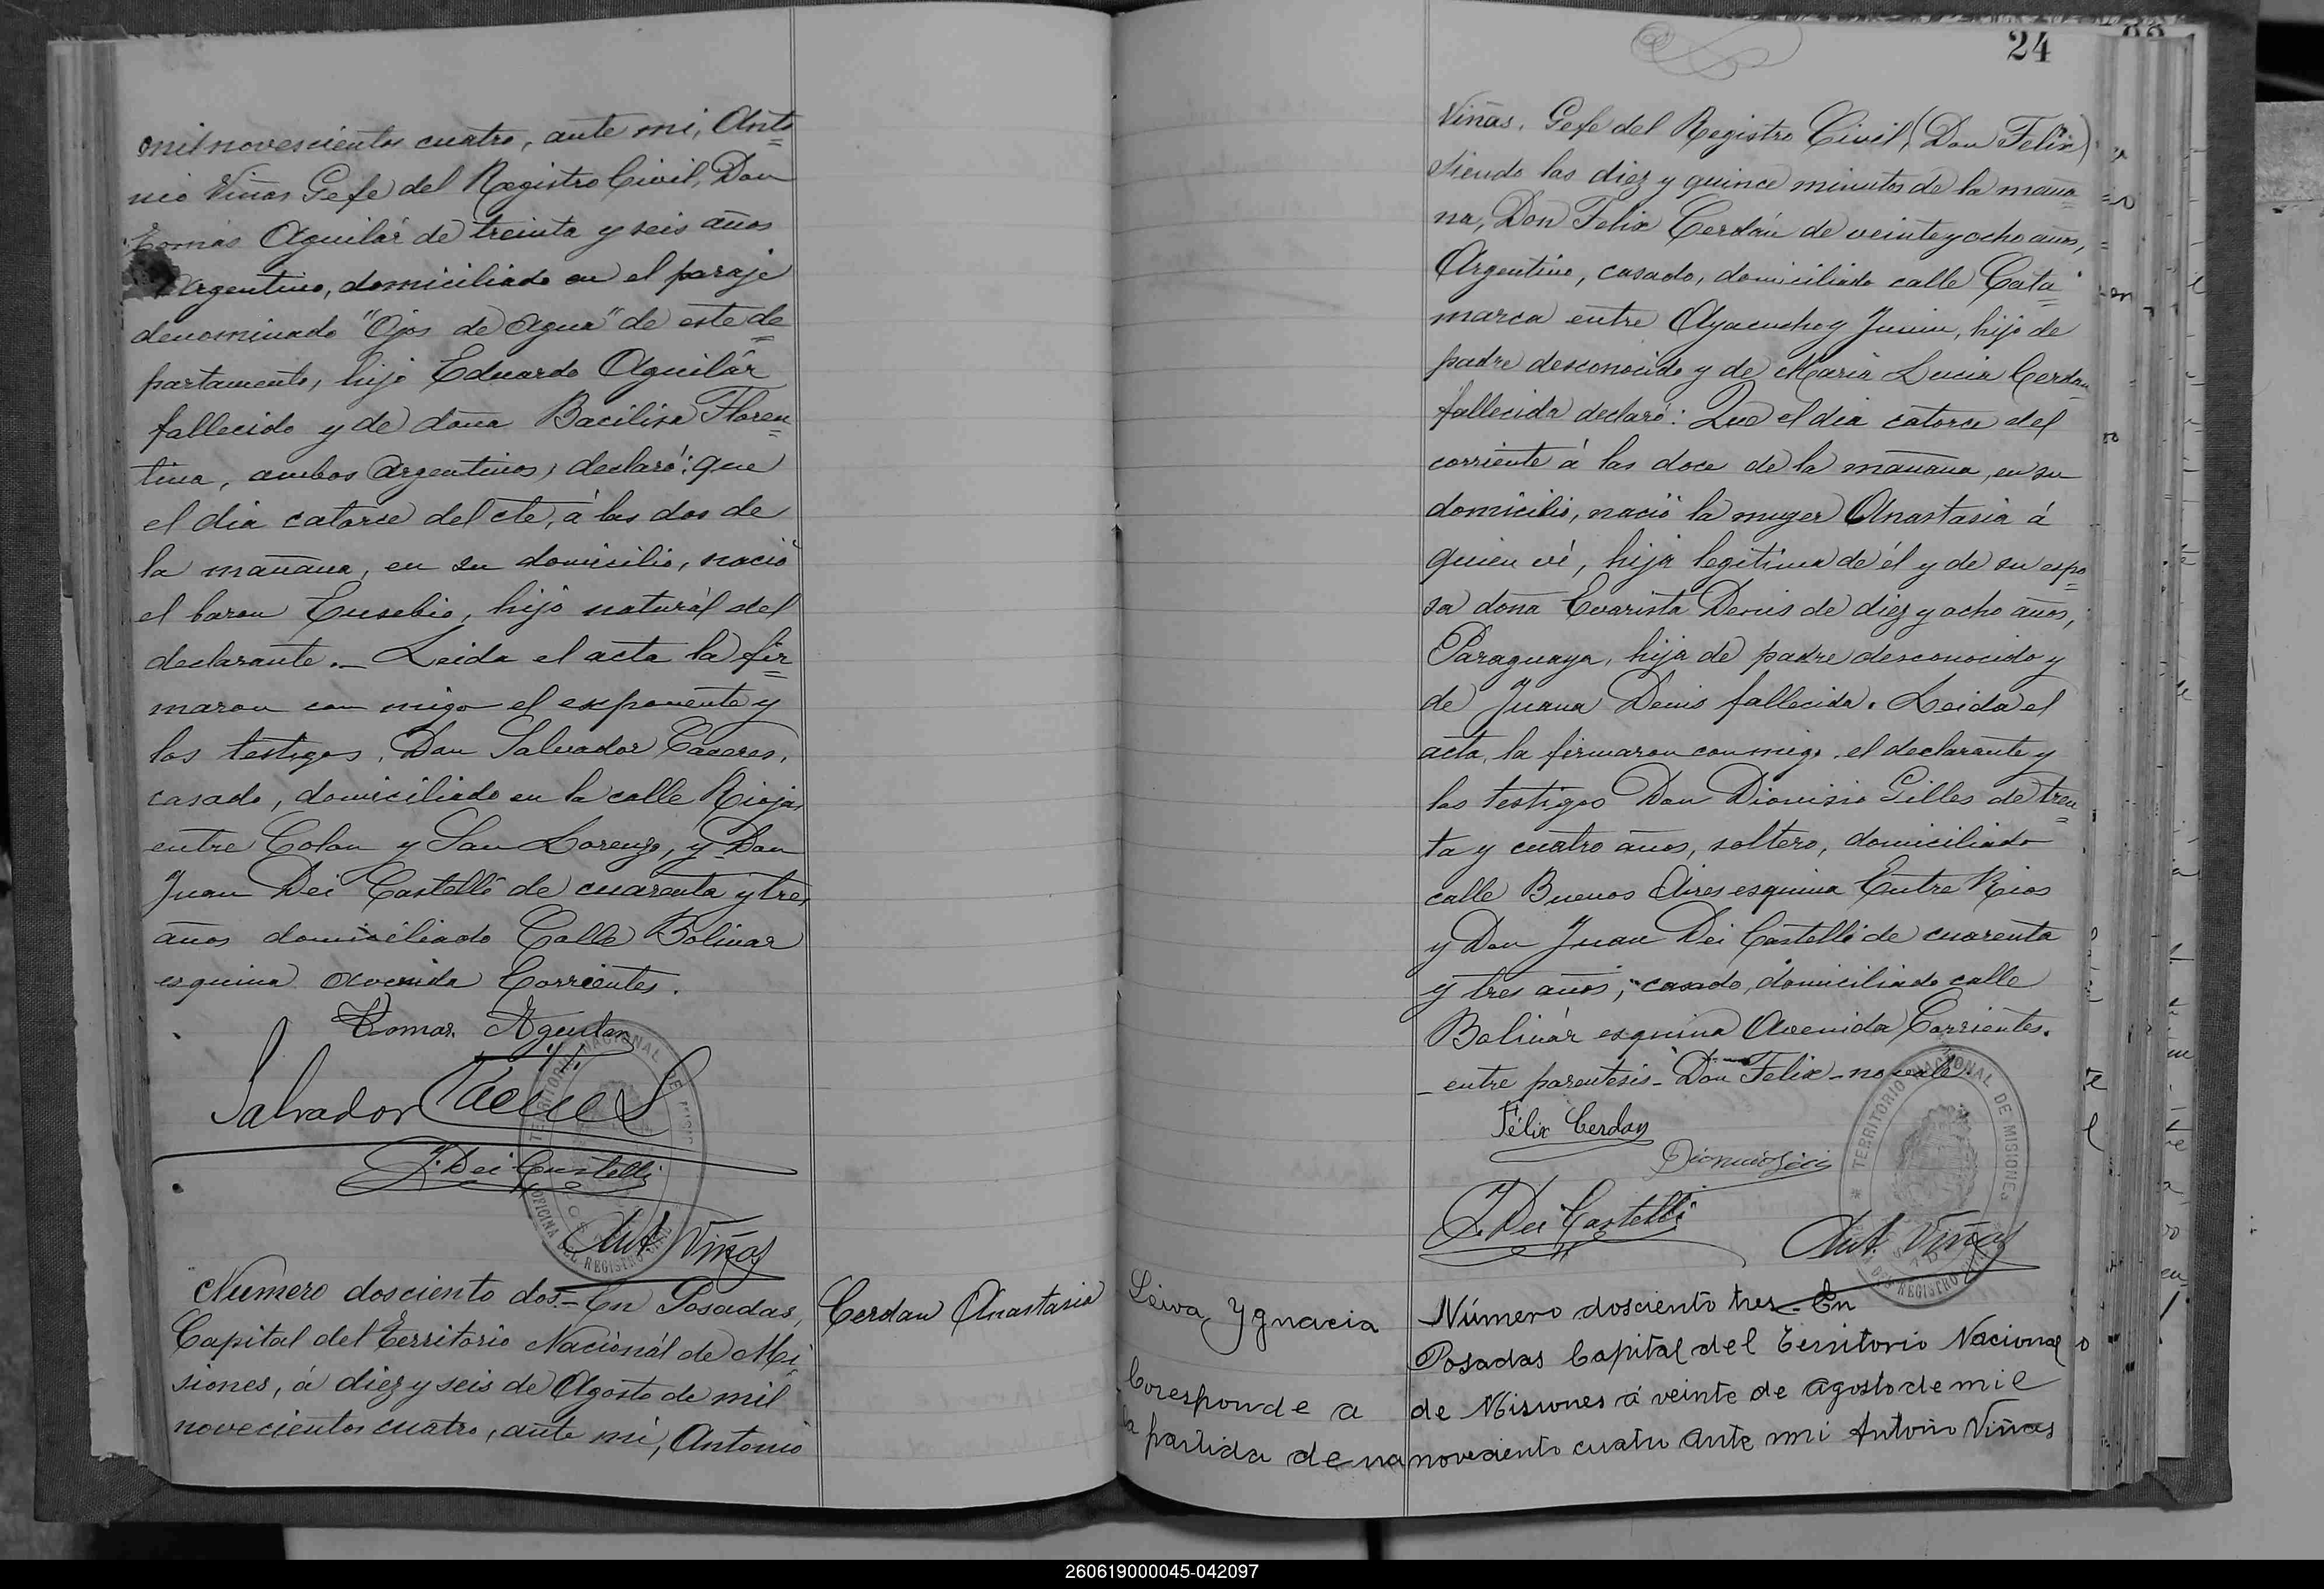 mil novescientos cuatro, ante mi, Anto=
nio Viñas Gefe del Registro Civil, Don
Tomás Aguilár de treinta y seis años
Argentino, domiciliado en el paraje
denominado "Ojos de Agua" de este de=
partamento, hijo Eduardo Aguilár
fallecido y de doña Bacilisa Floren=
tina, ambos Argentinos, declaró: que
el dia catorce del cte, á las dos de
la mañana, en su domicilio, nació
el baron Eusebio, hijo naturál del
declarante._ Leida el acta la fir=
maron con migo el exponente y
los testigos, Don Salvador Caceres,
casado, domiciliado en la calle Rioja,
entre Colon y San Lorenzo, y Don
Juan Dei Castelli de cuarenta y tres
años domiciliado Calle Bolivar
esquina Avenida Corrientes.
Tomas Aguilar
Salvador Caceres
J. Dei Castelli
Ant. Viñas
TERRITORIO NACIONAL DE MISIONES
OFICINA DEL REGISTRO CIVIL
Número dosciento dos.- En Posadas,
Capital del Territorio Nacionál de Mi
siones, á diez y seis de Agosto de mil
novecientos cuatro, ante mi, Antonio
Cerdan Anastasia
24
Viñas. Gefe del Registro Civil, (Don Felix)
siendo las diez y quince minutos de la maña=
na, Don Felix Cerdán de veinte y ocho años,
Argentino, casado, domiciliado calle Cata=
marca entre Ayacucho y Junin, hijo de
padre desconocido y de Maria Lucia Cerdan
fallecida declaró: Que el dia catorce del
corriente á las doce de la mañana, en su
domicilio, nació la muger Anastasia á
quien ví, hija legitima de él y de su espo=
sa doña Evarista Denis de diez y ocho años,
Paraguaya, hija de padre desconocido y
de Juana Denis fallecida. Leida el
acta, la firmaron con migo el declarante y
los testigos Don Dionisio Gilles de trein=
ta y cuatro años, soltero, domiciliado
calle Buenos Aires esquina Entre Rios
y Don Juan Dei Castelli de cuarenta
y tres años, casado, domiciliado calle
Bolivár esquina Avenida Corrientes.
_ entre parentesis - Don Felix - no vale.
Félix Cerdan
J. Dei Castelli
Ant. Viñas
TERRITORIO NACIONAL DE MISIONES
REGISTRO
Leiva, Ygnacia
Coresponde a
la partida de na
Número dosciento tres - En
Posadas Capital del Territorio Nacional
de Misiones á veinte de Agosto de mil
noveciento cuatro ante mi Antonio Viñas
260619000045-042097